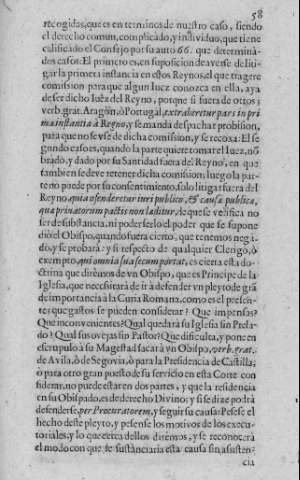 58
recogidas, que es en terminos de nuestro caso, siendo
el derecho comun, complicado, y individuo, que tiene
calificado el Consejo por su auto 66. que determinà
dos casos: El primero es, en suposicion de averse de liti-
gar la primera instancia en estos Reynos, el que tragere
comission para que algun Iuez conozca en ella, aya
de ser dicho Iuèz del Reyno, porque si fuera de otros;
verb. grat. Aragòn, ò Portugal, extraheretur pars in pri
ma instantia à Regno; y se manda despachar probision,
para que no se vse de dicha comission, y se recoxa: El se
gundo caso es, quando la parte quiere tomar el Iuez, nõ
brado, y dado por su Santidad fuera del Reyno, en que
tambien se deve retener dicha comission; luego la par-
te no puede por su consentimiento, solo litigar fuera del
Reyno, quia ofenderetur iuri publico, & causæ publica,
qua privatorum pactis non læditur, de que se verifica no
ser de sustancia, ni poderselo el poder que se supone
diò el Obispo, quando fuera cierto, que tenemos nega-
do, y se probarà: y si respecto de qualquier Clerigo, ò
exempto, qui omnia sua secum portat, es cierta esta do-
ctrina que dirèmos de vn Obispo, que es Principe de la
Iglesia, que necessitarà de ir à defender vn pleyto de grã
de importancia à la Curia Romana, como es el presen-
te: que gastos se pueden considerar? Que impensas?
Que inconvenientes? Qual quedarà su Iglesia sin Prela-
do? Qual sus ovejas sin Pastor? Que dificulta, y pone en
escrupulo à su Magestad sacar à vn Obispo, verb. grat.
de Avila, ò de Segovia, ò para la Presidencia de Castilla;
ò para otro gran puesto de su servicio en esta Corte con
siderar, no puede estàr en dos partes, y que la residencia
en su Obispado, es de derecho Divino; y si se dize podrà
defenderse, per Procuratorem, y seguir su causa: Pesese el
hecho deste pleyto, y pesense los motivos de los execu-
toriales, y lo que cerca dellos dirèmos, y se reconocerà
el modo con que se sustanciaria esta causa sin assisten-
cia